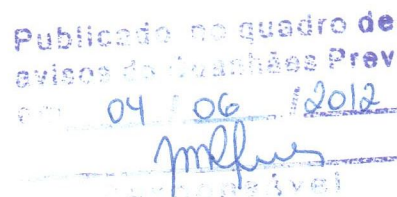 Publicado no quadro de
avisos da Guanhães Prev
em 04 / 06 / 2012
Responsável